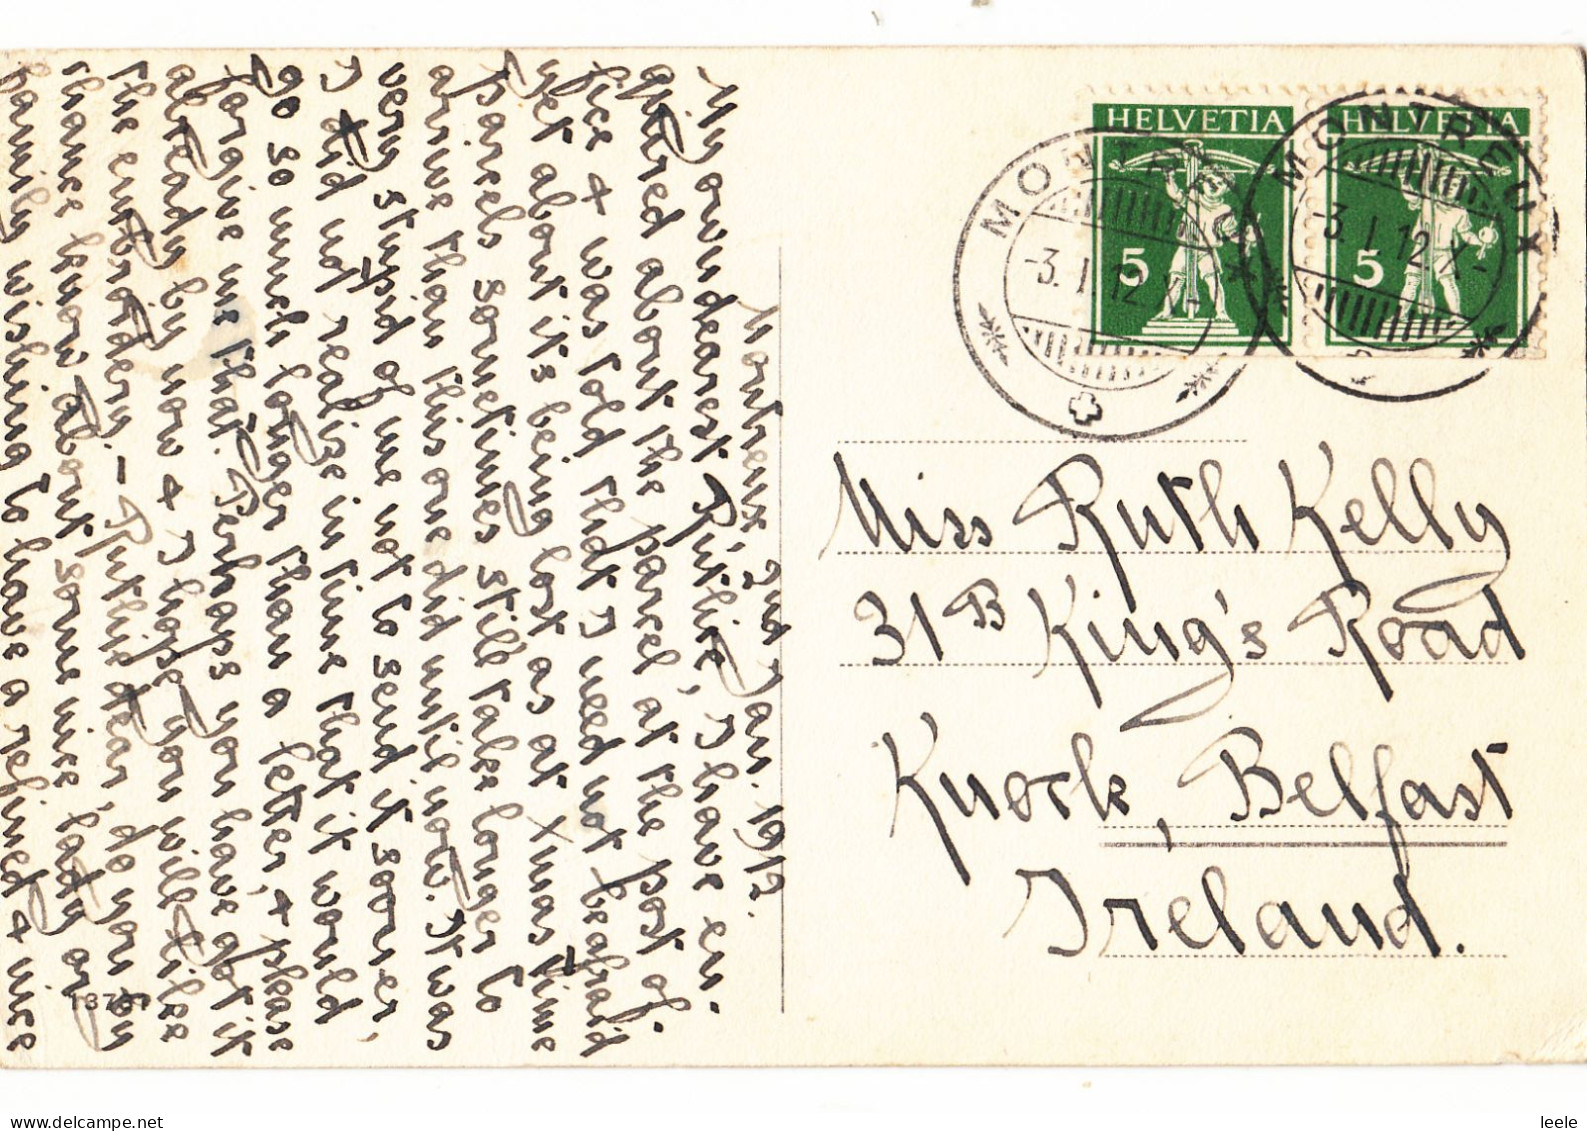 Montreux, 2nd Jan. 1912.
My own dearest Ruthie, I have en-
quired about the parcel at the post of-
fice & was told that I need not be afraid
yet about it's being lost as at Xmas time
parcels sometimes still take longer to
arrive than this one did until now. It was
very stupid of me not to send it sooner,
I did not realize in time that it would
go so much longer than a letter, & please
forgive me that. Perhaps you have got it
already by now & I hope you will like
the embroidery. – Ruthie dear, do you by
chance know about some nice lady or
family wishing to have a refined & nice
13797
HELVETIA
5
HELVETIA
5
MONTREUX
-3.I.12 X-
MONTREUX
-3.I.12 X-
Miss Ruth Kelly
31B King's Road
Knock, Belfast
Ireland.
delcampe.net
leele